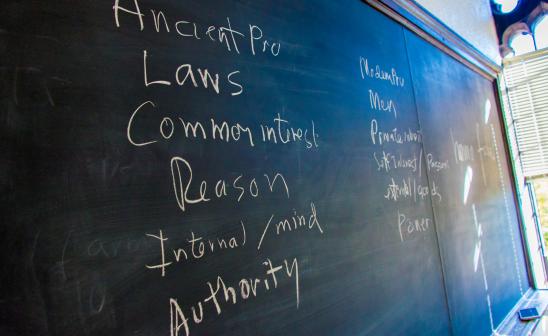 Ancient Pro
Laws
Common interest
Reason
Internal / mind
Authority
Modern Pro
Men
Private
Self interest / Passion
external / goods
Power